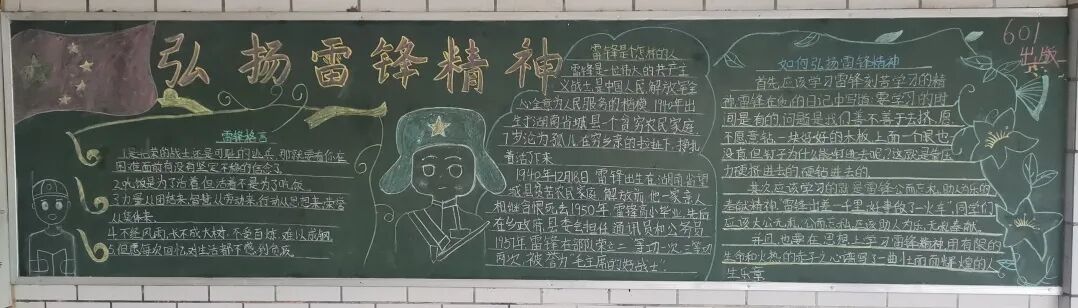 弘扬雷锋精神
601
出版
雷锋格言
1.是光荣的战士还是可耻的逃兵,那就要看你在
困难面前有没有坚定不移的信念了。
2.吃饭是为了活着,但活着不是为了吃饭。
3.力量从团结来,智慧从劳动来,行动从思想来,荣誉
从集体来。
4.不经风雨,长不成大树,不受百炼,难以成钢。
5.但愿每次回忆,对生活都不感到负疚
雷锋是个怎样的人
雷锋是一位伟大的共产主
义战士是中国人民解放军全
心全意为人民服务的楷模,1940年出
生于湖南省城县一个贫穷农民家庭
7岁沦为孤儿,在穷乡亲的拉扯下,挣扎
着活下来
1940年12月18日,雷锋出生在湖南省望
城县贫苦农民家庭,解放前,他一家亲人
相继含恨死去,1950年,雷锋高小毕业,先后
在乡政府,县委担任通讯员和公务员
1957年雷锋在部队荣立二等功一次三等功
两次,被誉为"毛主席的好战士"
如何弘扬雷锋精神
首先,应该学习雷锋刻苦学习的精
神,雷锋在他的日记中写道:要学习的时
间是有的,问题是我们善不善于去挤,愿
不愿意钻,一块好好的木板,上面一个眼也
没有,但钉子为什么能钉进去呢?这就是靠压
力硬挤进去的,硬钻进去的。
其次,应该学习的就是雷锋公而忘私,助人为乐的
奉献精神,"雷锋出差一千里,好事做了一火车"同学们
应该大公无私,公而忘私,应该助人为乐,无私奉献。
并且,也要在思想上学习雷锋精神,用有限的
生命和火热的赤子之心谱写了一曲壮丽而辉煌的人
生乐章